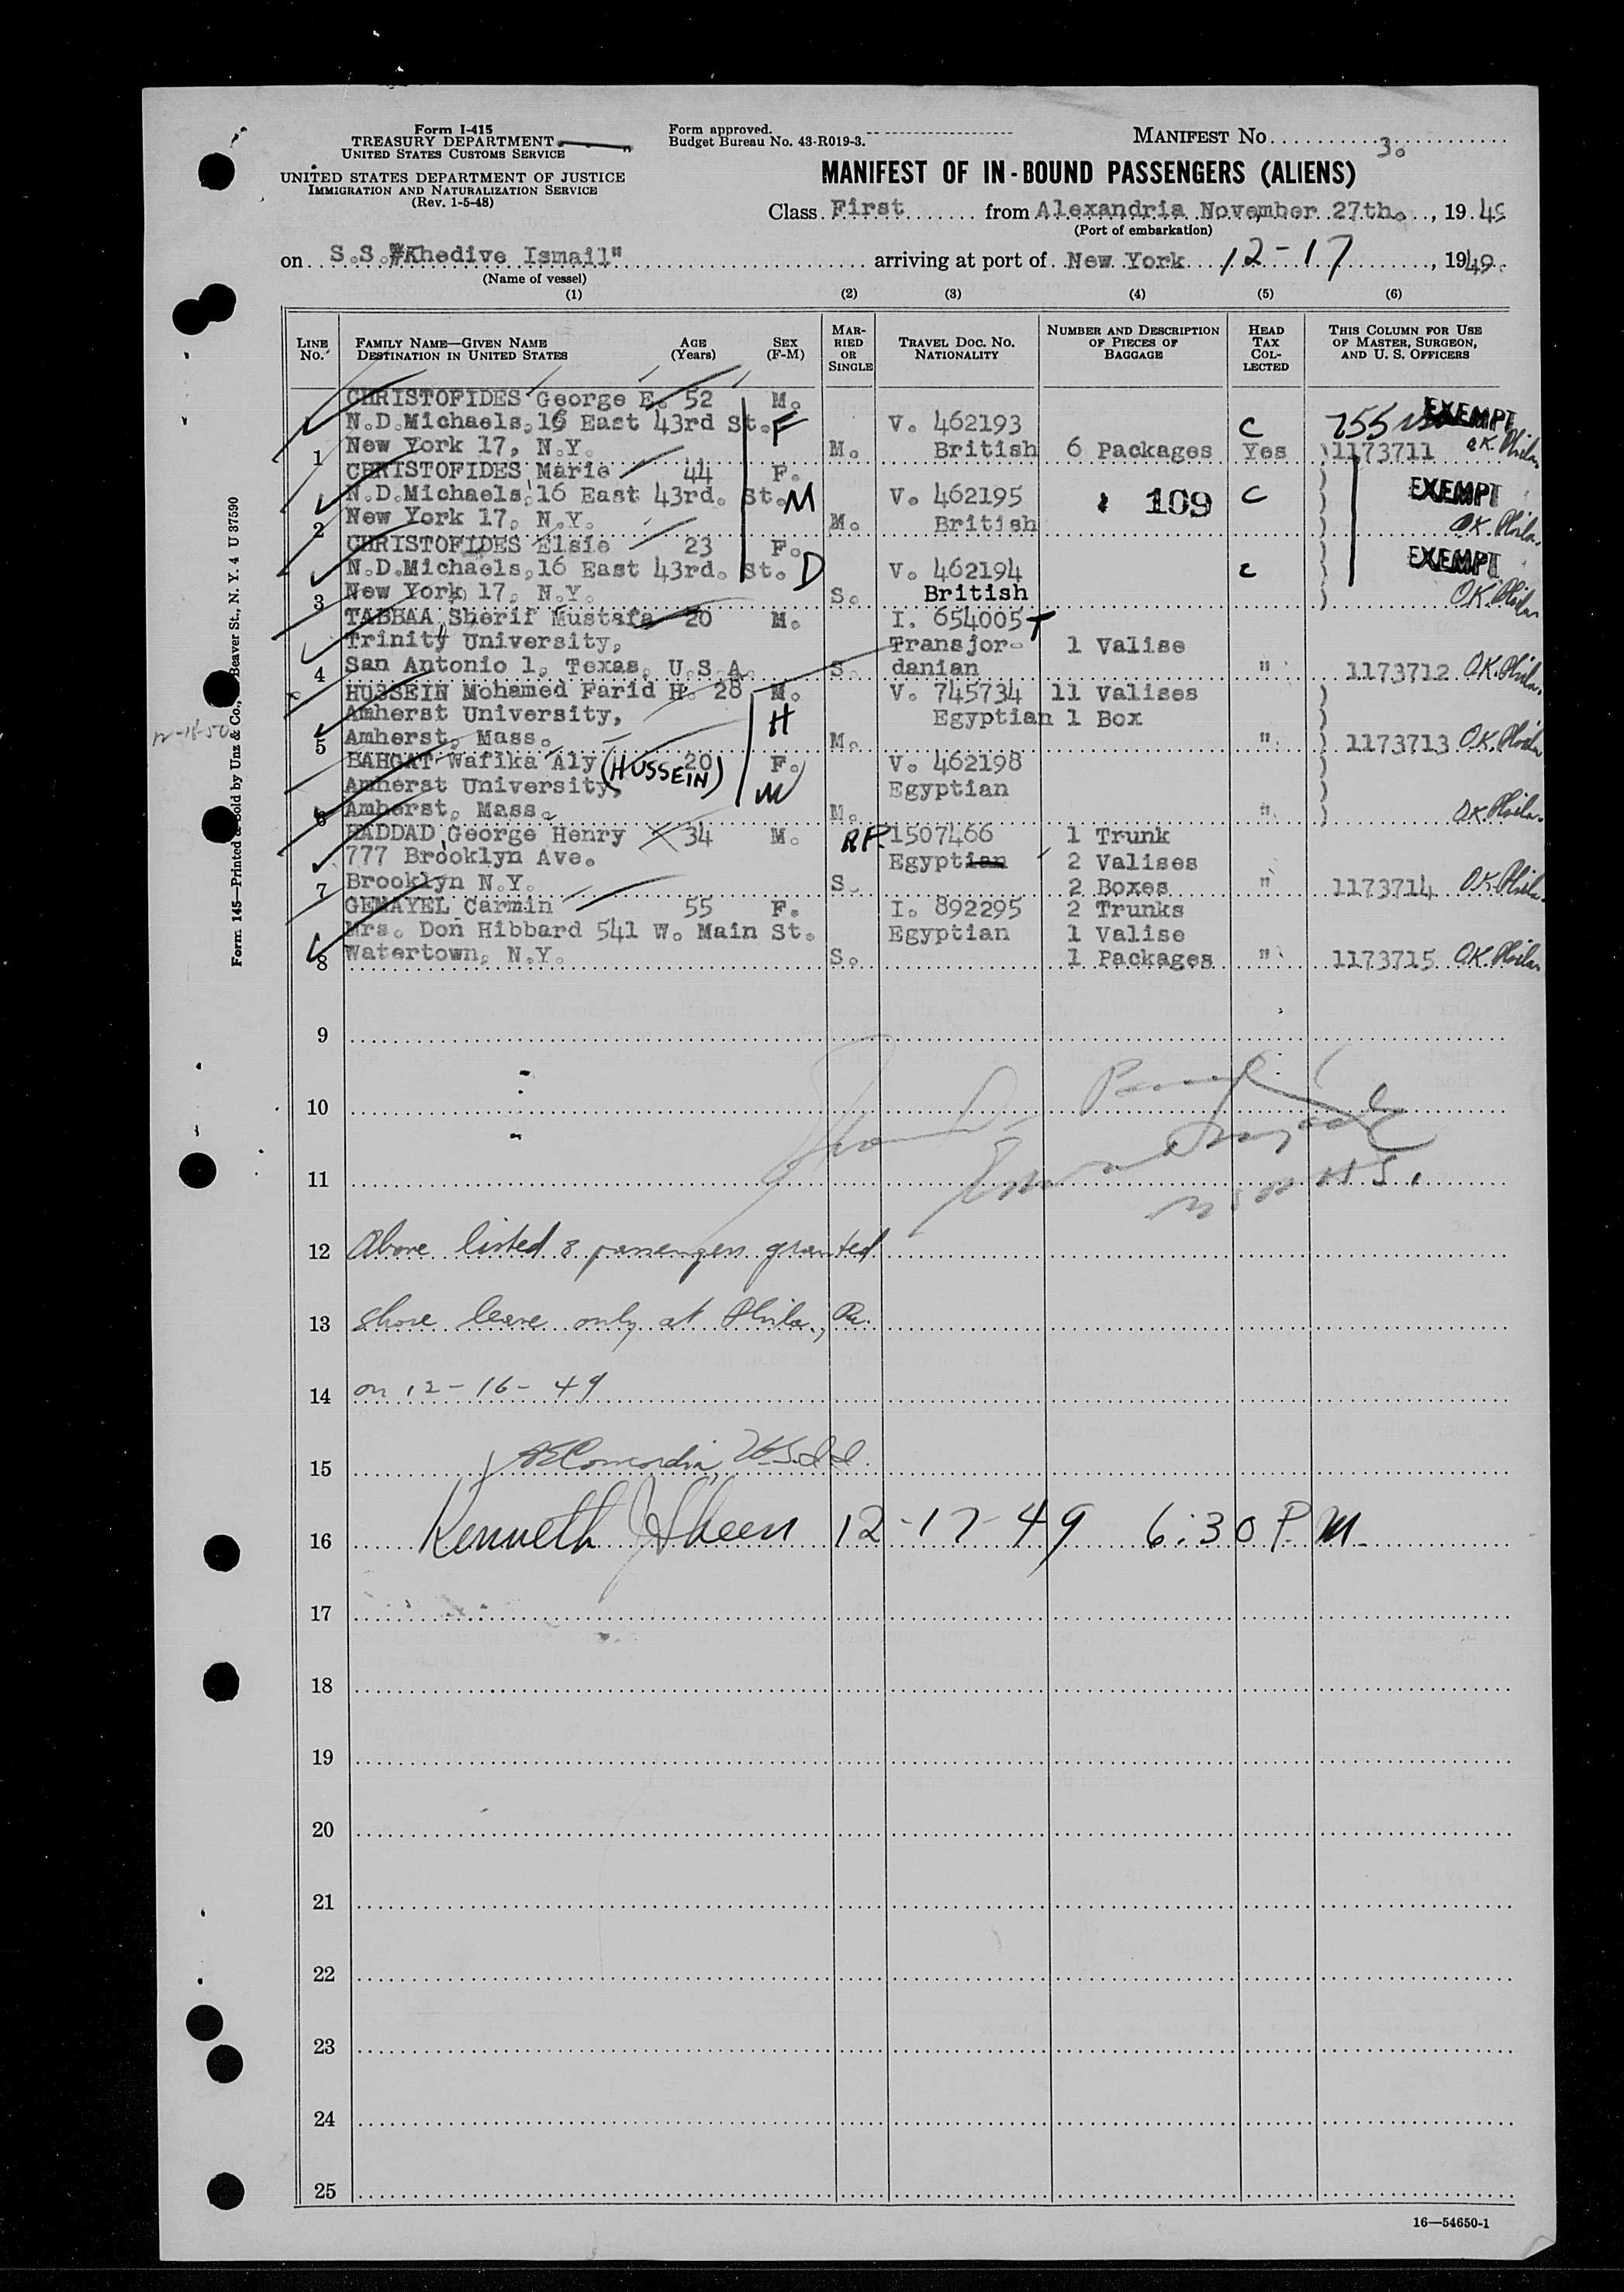 Form I-415
TREASURY DEPARTMENT
UNITED STATES CUSTOMS SERVICE
UNITED STATES DEPARTMENT OF JUSTICE
IMMIGRATION AND NATURALIZATION SERVICE
(Rev. 1-5-48)
Form approved.
Budget Bureau No. 43-R019-3.
MANIFEST No. 3.
MANIFEST OF IN-BOUND PASSENGERS (ALIENS)
Class First from Alexandria November 27th., 1949
(Port of embarkation)
on S.S."Khedive Ismail" arriving at port of New York 12-17, 1949.
(Name of vessel)
(1) (2) (3) (4) (5) (6)
LINE No. FAMILY NAME—GIVEN NAME DESTINATION IN UNITED STATES AGE (Years) SEX (F-M) MARRIED OR SINGLE TRAVEL DOC. No. NATIONALITY NUMBER AND DESCRIPTION OF PIECES OF BAGGAGE HEAD TAX COLLECTED THIS COLUMN FOR USE OF MASTER, SURGEON, AND U. S. OFFICERS
CHRISTOFIDES George E. 52 M.
N.D.Michaels,16 East 43rd St. F V. 462193 C EXEMPT
1 New York 17, N.Y. M. British 6 Packages Yes 1173711 OK. Phila.
CHRISTOFIDES Marie 44 F.
N.D.Michaels,16 East 43rd. St. M V. 462195 109 C EXEMPT
2 New York 17, N.Y. M. British OK. Phila.
CHRISTOFIDES Elsie 23 F.
N.D.Michaels,16 East 43rd. St. D V. 462194 c EXEMPT
3 New York 17, N.Y. S. British OK. Phila.
TABBAA Sherif Mustafa 20 M. I. 654005 T
Trinity University, Transjor- 1 Valise
4 San Antonio 1, Texas, U.S.A. S. danian " 1173712 OK. Phila.
HUSSEIN Mohamed Farid H. 28 M. V. 745734 11 Valises
Amherst University, H Egyptian 1 Box
5 Amherst, Mass. M. " 1173713 OK. Phila.
BAHGAT Wafika Aly (HUSSEIN) 20 F. V. 462198
Amherst University, W Egyptian
6 Amherst, Mass. M. " OK Phila.
HADDAD George Henry 34 M. RP. 1507466 1 Trunk
777 Brooklyn Ave. Egyptian 2 Valises
7 Brooklyn N.Y. S. 2 Boxes " 1173714 OK. Phila.
GEMAYEL Carmin 55 F. I. 892295 2 Trunks
Mrs. Don Hibbard 541 W. Main St. Egyptian 1 Valise
8 Watertown, N.Y. S. 1 Packages " 1173715 OK. Phila.
9
10
11
12 Above listed 8 passengers granted
13 shore leave only at Phila., Pa.
14 on 12-16-49
15
16 Kenneth J Sheen 12-17-49 6:30 P.M.
17
18
19
20
21
22
23
24
25
16—54650-1
12-18-50
Form 145—Printed & Sold by Unz & Co., Beaver St., N. Y. 4 U 87590